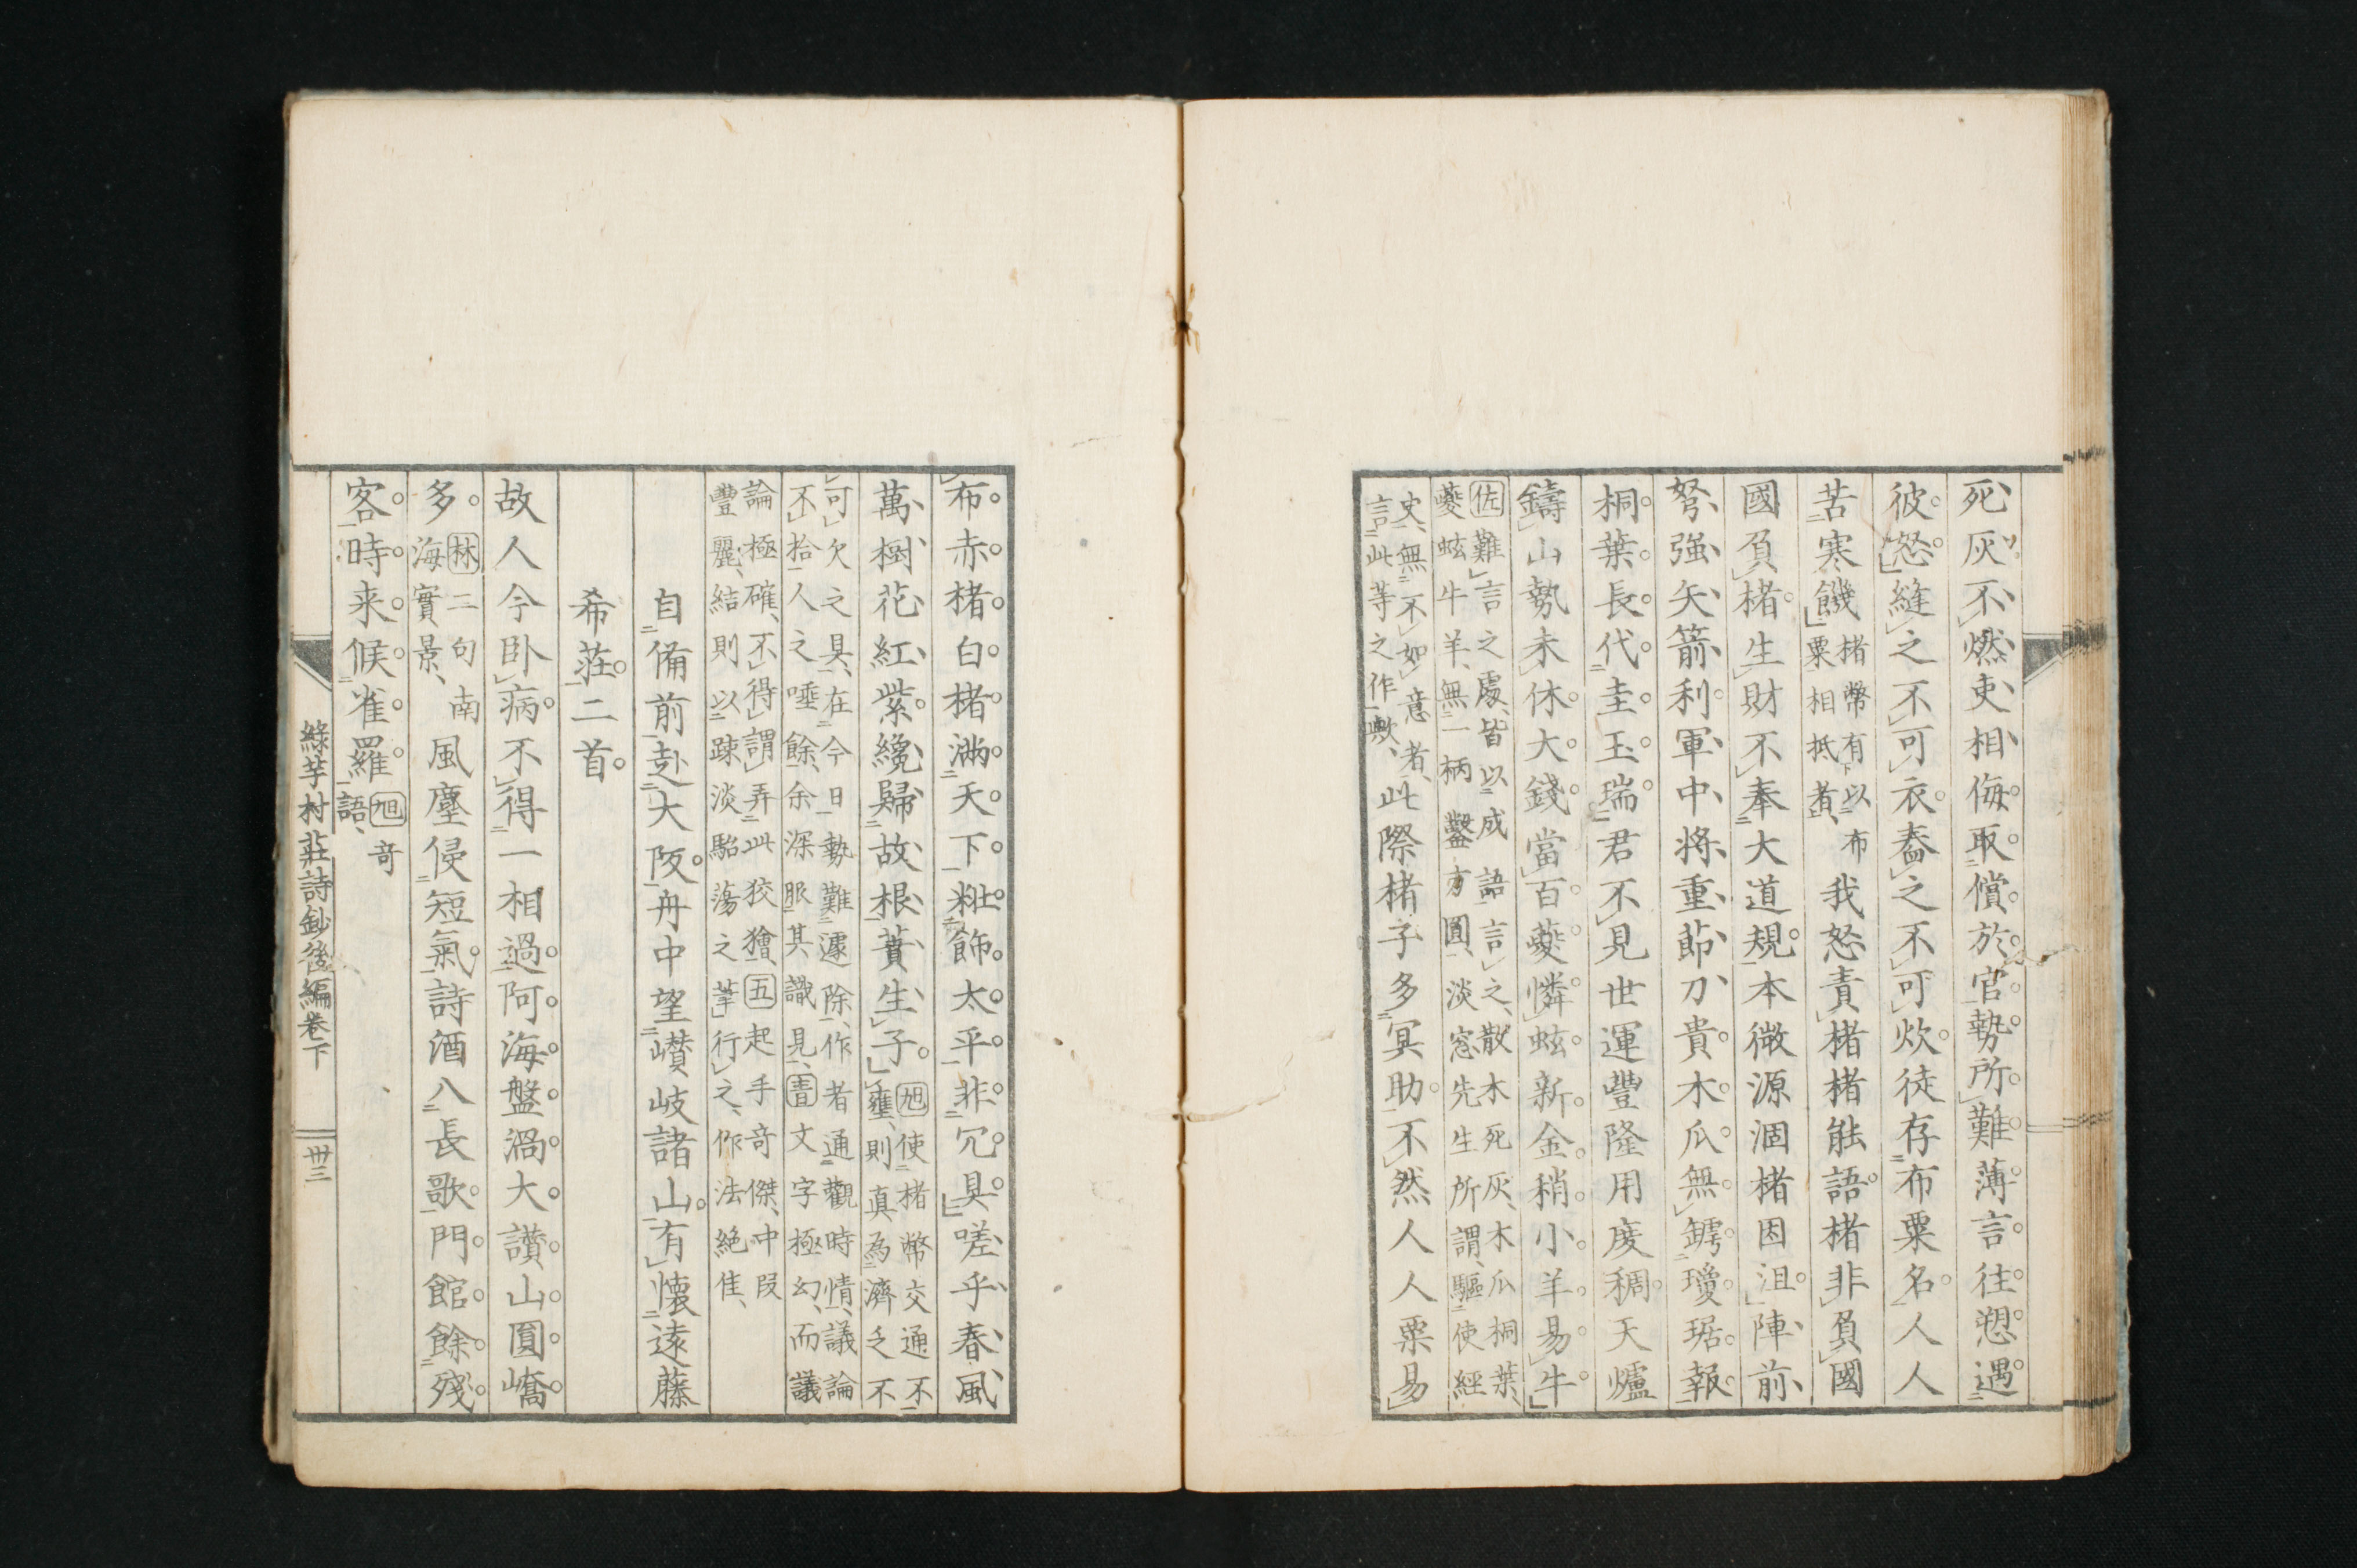 死灰不燃吏相侮取償於官勢所難薄言往愬遇
彼怒縫之不可衣舂之不可炊徒存布粟名人人
苦寒饑
楮幣有以布
粟相抵者
我怒責楮楮能語楮非負國
國負楮生財不奉大道規本微源涸楮因沮陣前
弩強矢箭利軍中將重節刀貴木瓜無鍔瓊琚報
桐葉長代圭玉瑞君不見世運豐隆用度稠天爐
鑄山勢未休大錢當百夔憐蚿新金稍小羊易牛
佐難言之處皆以成語言之散木死灰木瓜桐葉
夔蚿牛羊無一柄鑿方圓淡窓先生所謂驅使經
史無不如意者
言此等之作歟
此際楮子多冥助不然人人粟易
布赤楮白楮滿天下粧飾太平非冗具嗟乎春風
萬樹花紅紫纔歸故根蕡生子
旭使楮幣交通不
壅則真為濟乏不
可欠之具在今日勢難遽除作者通觀時情議論
不拾人之唾餘余深服其識見青文字極幻而議
論極確不得謂弄此狡獪五起手奇傑中叚
豐麗結則以踈淡駘蕩之筆行之作法絕佳
自備前赴大阪舟中望巑岐諸山有懷遠藤
希莊二首
故人今卧病不得一相過阿海盤渦大讚山圓嶠
多
林二句南
海實景
風塵侵短氣詩酒入長歌門館餘殘
客時来候雀羅
旭奇
語
綠芋村莊詩鈔後編卷下
卅三